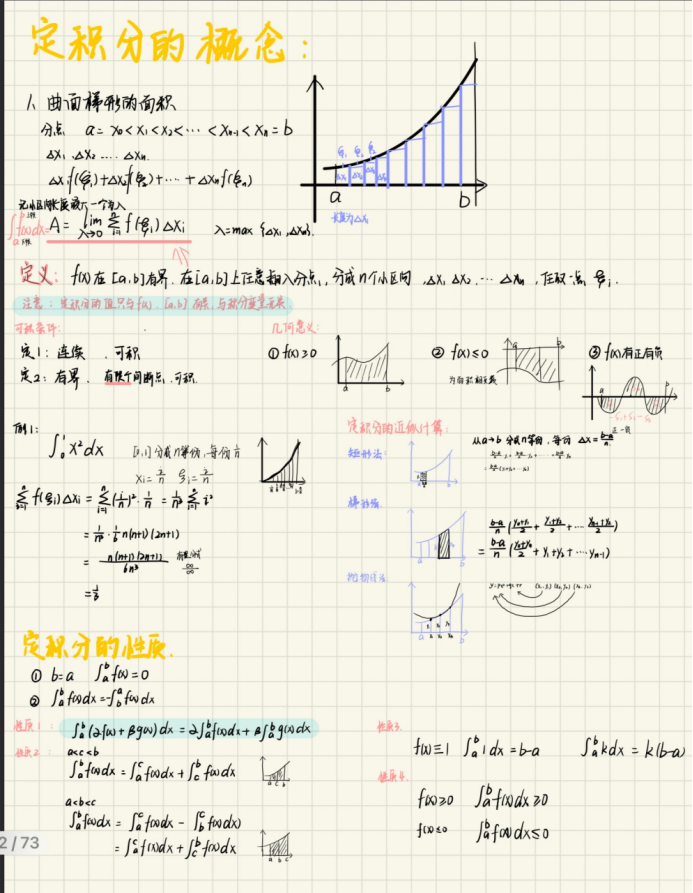 定积分的概念:
1. 曲面梯形的面积
分点 a = x₀ < x₁ < x₂ < ⋯ < xₙ₋₁ < xₙ = b
Δx₁, Δx₂ ⋯ Δxₙ
Δx₁f(ξ₁)+Δx₂f(ξ₂)+⋯+Δxₙf(ξₙ)
∫f(x)dx = A = lim λ→0 Σ i=1 n f(ξᵢ)Δxᵢ λ=max {Δx₁, Δxₙ}
ξ₁ ξ₂ ξ₃
Δx₁ Δx₂ Δx₃
a b
长度为Δx₁
定义: f(x)在[a,b]有界, 在[a,b]上任意插入分点, 分成n个小区间, Δx₁ Δx₂ ⋯ Δxₙ, 任取一点 ξᵢ.
注意: 定积分的值只与f(x), [a,b]有关, 与积分变量无关
可积条件:
定1: 连续, 可积
定2: 有界, 有限个间断点, 可积.
几何意义:
① f(x)≥0
a b
② f(x)≤0
a b
③ f(x)有正有负
例1:
∫₀¹ x²dx [0,1]分成n等份, 每份 1/n
Σ i=1 n f(ξᵢ)Δxᵢ = Σ i=1 n (i/n)²·1/n = 1/n³ Σ i²
= 1/n³ · 1/6 n(n+1)(2n+1)
= n(n+1)(2n+1)/6n³ ∞/∞
= 1/3
定积分的近似计算:
从a→b 分成n等份, 每份 Δx = b-a/n
矩形法:
梯形法:
b-a/n (y₀+y₁/2 + y₁+y₂/2 + ⋯ yₙ₋₁+yₙ/2)
= b-a/n (y₀+yₙ/2 + y₁+y₂+⋯yₙ₋₁)
抛物线法:
定积分的性质.
① b=a ∫ₐᵇ f(x)=0
② ∫ₐᵇ f(x)dx = -∫ᵇₐ f(x)dx
性质1: ∫ₐᵇ(αf(x)+βg(x))dx = α∫ₐᵇf(x)dx + β∫ₐᵇg(x)dx
性质2: a<c<b
∫ₐᵇf(x)dx = ∫ₐᶜf(x)dx + ∫ᶜᵇf(x)dx
a c b
a<b<c
∫ₐᵇf(x)dx = ∫ₐᶜf(x)dx - ∫ᵇᶜf(x)dx)
= ∫ₐᶜf(x)dx + ∫ᶜᵇf(x)dx
a b c
性质3.
f(x)≡1 ∫ₐᵇ1dx = b-a ∫ₐᵇkdx = k(b-a)
性质4.
f(x)≥0 ∫ₐᵇf(x)dx≥0
f(x)≤0 ∫ₐᵇf(x)dx≤0
2/73